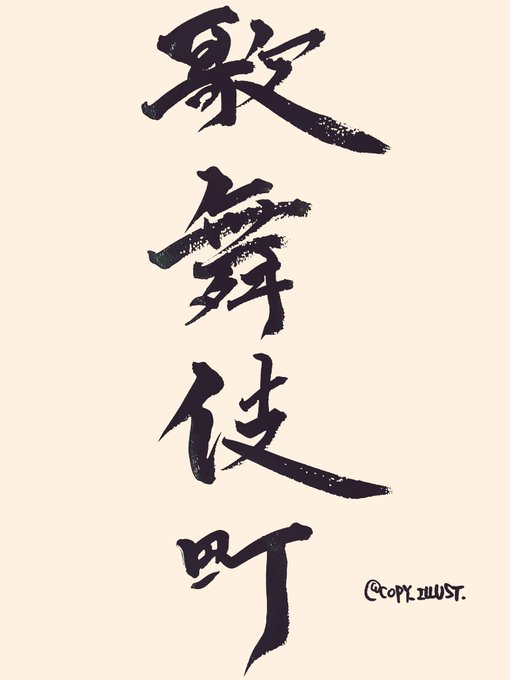 歌舞伎町
@COPY_ILLUST.